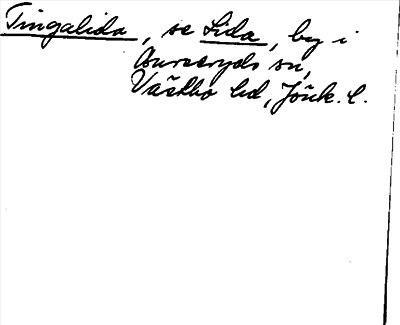 Tingalida, se Lida, by i
Burseryds sn,
Västbo hd, Jönk. l.